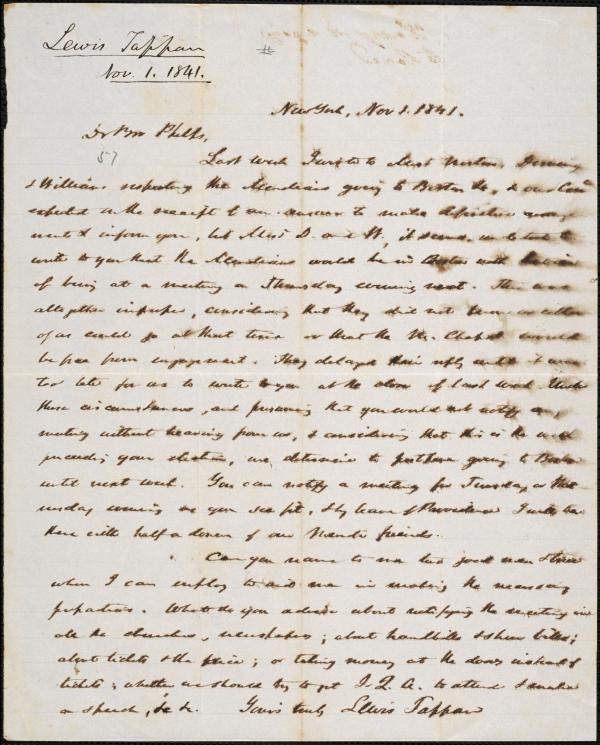 Lewis Tappan
Nov. 1. 1841.
#
New York, Nov 1. 1841.
Dr Bro Phelps,
57
Last week I wrote to Messrs Norton, Deming
& Williams respecting the Mendians going to Boston &c, & our Com
expected on the receipt of an answer to make definitive
ments & inform you, but Messrs D. and W., it seems,
write to you that the Mendians would be in Boston with
of being at a meeting on Thursday evening next. This was
altogether improper, considering that they did not know
of us could go at that time or that the M. Chapel would
be free from engagement. They delayed their reply until it was
too late for us to write to you at the close of last week. Under
these circumstances, and presuming that you would not notify a
meeting without hearing from us, & considering that this is the week
preceding your election, we determine to postpone going to Boston
until next week. You can notify a meeting for Tuesday or
nesday evening as you see fit, & by leave of Providence I will be
there with half a dozen of our Mendi friends.
Can you name to me two good men & true
whom I can employ to aid me in making the necessary
preparations. What do you advise about notifying the meeting in
all the churches, newspapers; about handbills & show bills;
about tickets & the price; or taking money at the doors instead of
tickets; whether we should try to get J. Q. A. to attend & make
a speech, &c &c. Yours truly Lewis Tappan